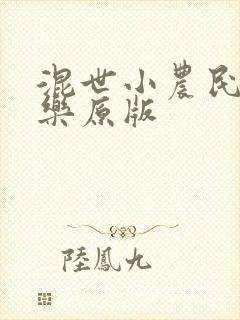 混世小農民
藥原版
陸鳳九